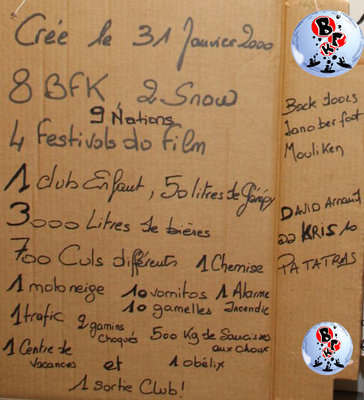 Créé le 31 Janvier 2000
8 BFK 2 Snow
9 Nations
4 Festivals du Film
1 club Enfant, 50 litres de Génépy
3000 Litres de bières
700 Culs différents 1 Chemise
1 motoneige 10 vomitos 1 Alarme Incendie
1 trafic 10 gamelles
2 gamins choqués 500 Kg de Saucisses aux choux
1 Centre de Vacances et 1 obélix
1 sortie Club!
BFK
Jano ber foot
Mouliken
DAVID Arnaud
DD KRIS 10
PATATRAS
BFK